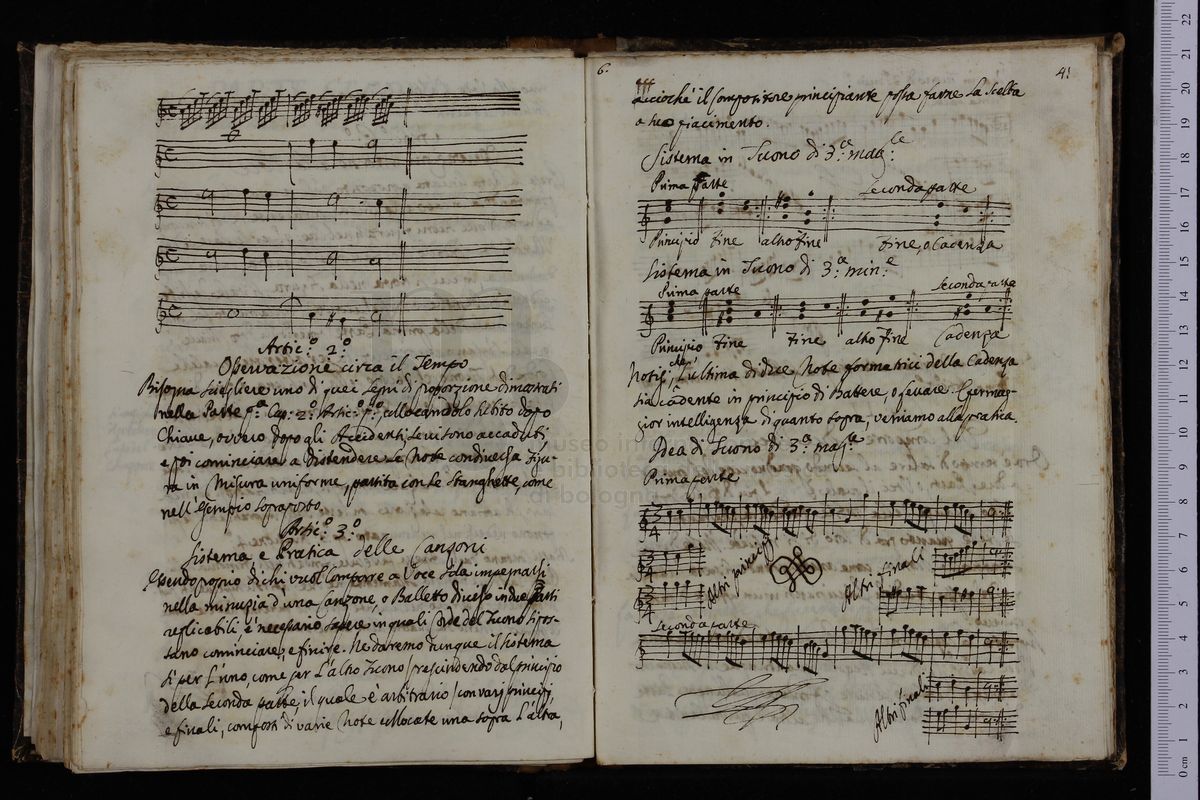 Artic.º 2.º
Osservazione circa il Tempo
Bisogna sciegliere uno di quei segni di proporzione dimostrati
nella Parte p.ª Cap: 2.º Artic: p.º, collocandolo subito dopo
Chiave, ovvero dopo gli Accidenti se vi sono accaduti
e poi cominciare a distendere le Note con diversa figu-
ra in Misura uniforme, partita con le stanghette, come
nell'Esempio sopraposto.
Artic.º 3.º
Sistema e Pratica delle Canzoni
Essendo proprio di chi vuol Comporre a Voce sola impegnarsi
nella minuzia d'una Canzone, o Balletto diviso in due Parti
replicabili, è necessario sapere in quali Corde del Tuono si pos-
sano cominciare, e finire. Ne daremo dunque il sistema
sì per l'uno, come per l'altro Tuono (prescindendo dal principio
della seconda parte il quale è arbitrario) con varj principj,
e finali, composti di varie Note collocate una sopra l'altra,
6.
41
acciochè il Compositore principiante possa farne la scelta
a suo piacimento.
Sistema in Tuono di 3.ª mag.ce
Prima parte
Seconda parte
Principio fine altro fine
fine, o Cadenza
Sistema in Tuono di 3.ª min.e
Prima parte
Seconda parte
Principio fine fine altro fine Cadenza
Notisi che l'ultima di due Note formatrici della Cadenza
sia cadente in principio di battere, o levare. E per mag-
gior intelligenza di quanto sopra, veniamo alla pratica.
Idea di Tuono di 3.ª mag.re
Prima parte
Altri principj
Altri finali
Seconda parte
Altri finali
museo
biblioteca
di bologna
22
21
20
19
18
17
16
15
14
13
12
11
10
9
8
7
6
5
4
3
2
1
0 cm